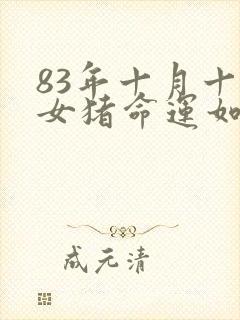 83年十月十
女猪命运如
成元清